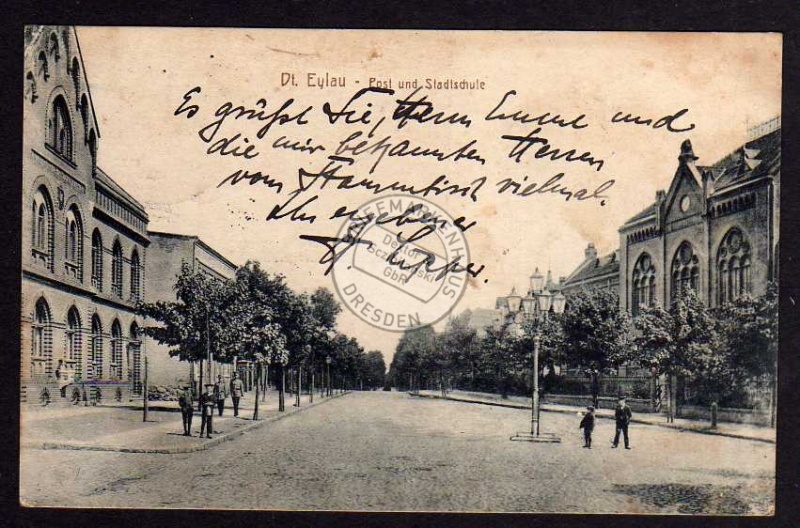 Dt. Eylau - Post und Stadtschule
Es grüßt Sie, Herrn Emme und
die mir bekannten Herren
vom Stammtisch vielmal.
Ihr ergebener
Küpper.
BRIEFMARKENHAUS
DRESDEN
GbR